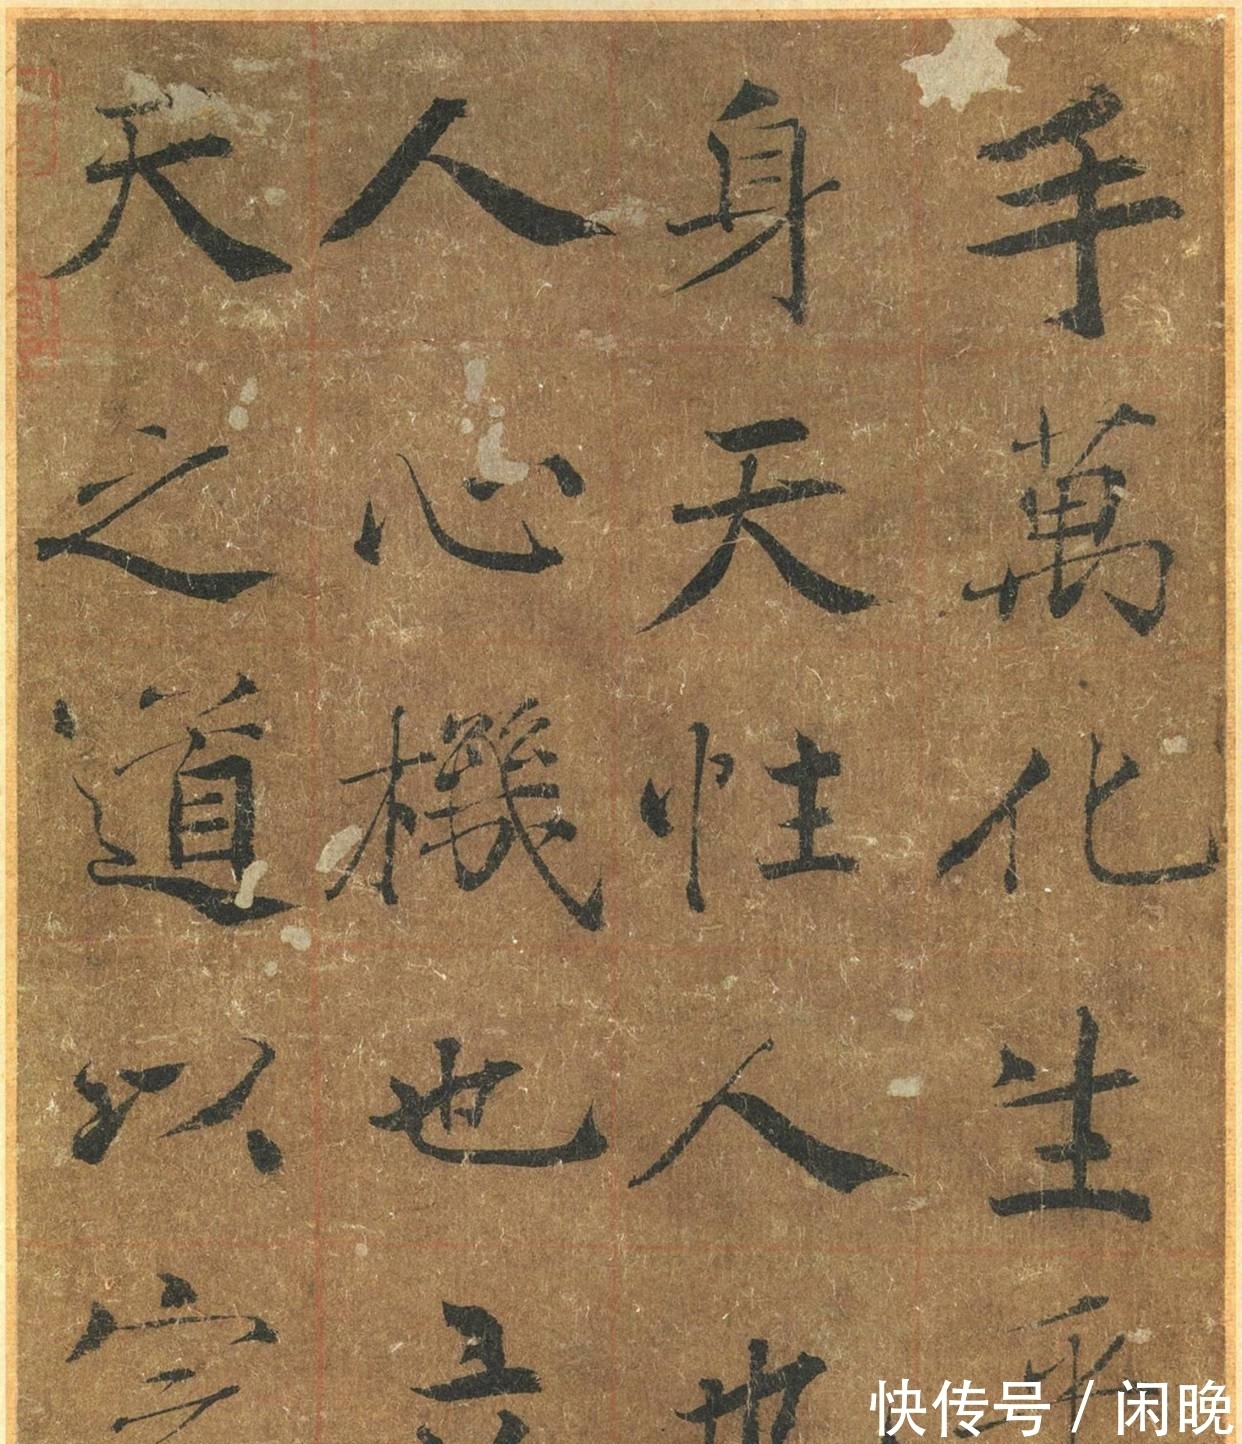 手萬化生乎
身天性人也
人心機也立
天之道以定
快传号 / 闲晚